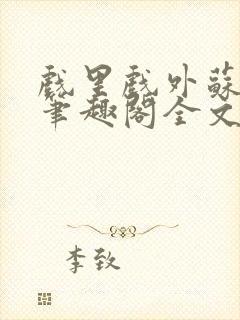 戲里戲外蘇
筆趣閣全文
李致